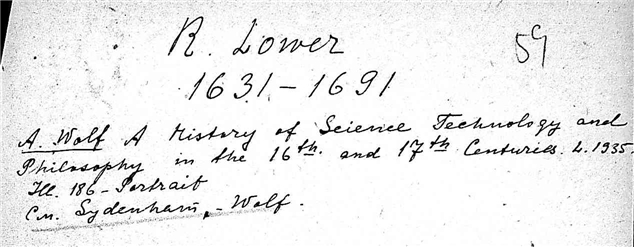 R. Lower
59
1631-1691
A. Wolf A History of Science Technology and
Philosophy in the 16th. and 17th Centuries. L. 1935.
Ill. 186 - Portrait
См. Sydenham, - Wolf.